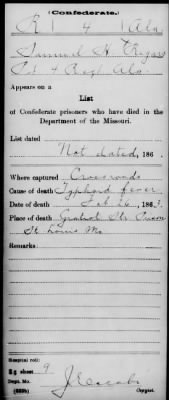 (Confederate.)
R | 4 | Ala
Samuel H.
Pvt 4 Regt Ala.
Appears on a
List
of Confederate prisoners who have died in the
Department of the Missouri.
List dated
Not dated, 186 .
Where captured Crossroads
Cause of death Typhoid fever
Date of death Feb 26, 1863.
Place of death Gratiot Str. Prison
St Louis Mo
Remarks:
Hospital roll:
sheet 9
Dept. No.
Copyist.